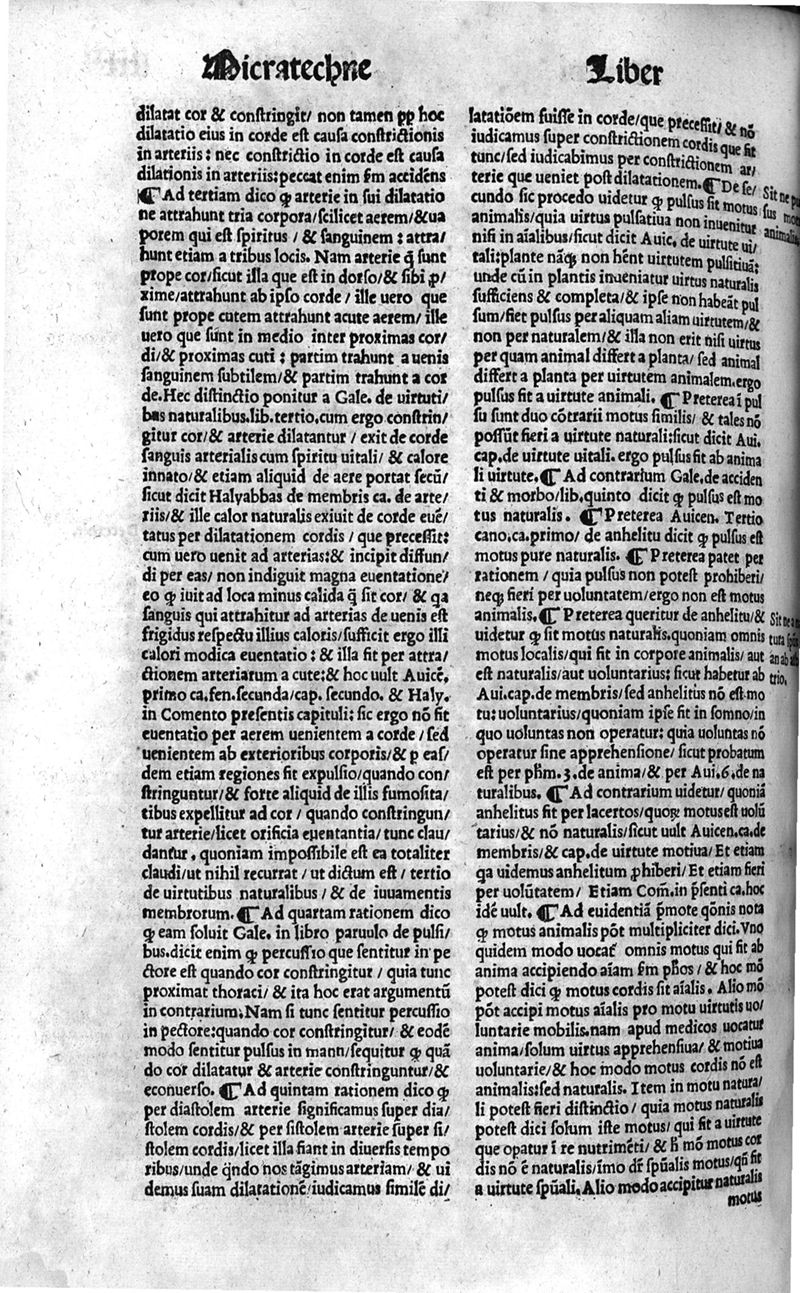 Micratechne Liber
dilatat cor & constringit/ non tamen ꝓp hoc
dilatatio eius in corde est causa constrictionis
in arteriis: nec constrictio in corde est causa
dilationis in arteriis: peccat enim ẜm accidens
¶ Ad tertiam dico ꝙ arterie in sui dilatatio
ne attrahunt tria corpora/scilicet aerem/&ua
porem qui est spiritus / & sanguinem: attra/
hunt etiam a tribus locis. Nam arterie q̃ sunt
prope cor/sicut illa que est in dorso/& sibi ꝓ/
xime/attrahunt ab ipso corde / ille uero que
sunt prope cutem attrahunt acute aerem/ ille
uero que sunt in medio inter proximas cor/
di/& proximas cuti: partim trahunt a uenis
sanguinem subtilem/& partim trahunt a cor
de. Hec distinctio ponitur a Gale. de uirtuti/
bus naturalibus.lib.tertio.cum ergo constrin/
gitur cor/& arterie dilatantur / exit de corde
sanguis arterialis cum spiritu uitali/ & calore
innato/& etiam aliquid de aere portat secũ/
sicut dicit Halyabbas de membris ca. de arte/
riis/& ille calor naturalis exiuit de corde euẽ/
tatus per dilatationem cordis / que precessit:
cum uero uenit ad arterias:& incipit diffun/
di per eas/ non indiguit magna euentatione/
eo ꝙ iuit ad loca minus calida q̃ sit cor/ & qa
sanguis qui attrahitur ad arterias de uenis est
frigidus respectu illius caloris/sufficit ergo illi
calori modica euentatio: & illa fit per attra/
ctionem arteriarum a cute:& hoc uult Auicẽ.
primo ca.fen.secunda/cap. secundo. & Haly.
in Comento presentis capituli: sic ergo nõ fit
euentatio per aerem uenientem a corde /sed
uenientem ab exterioribus corporis/& p eas/
dem etiam regiones fit expulsio/quando con/
stringuntur/& forte aliquid de illis fumosita/
tibus expellitur ad cor / quando constringun/
tur arterie/licet orificia euentantia/ tunc clau/
dantur, quoniam impossibile est ea totaliter
claudi/ut nihil recurrat / ut dictum est / tertio
de uirtutibus naturalibus / & de iuuamentis
membrorum. ¶ Ad quartam rationem dico
ꝙ eam soluit Gale. in libro paruulo de pulsi/
bus.dicit enim ꝙ percussio que sentitur in pe
ctore est quando cor constringitur / quia tunc
proximat thoraci/ & ita hoc erat argumentũ
in contrarium. Nam si tunc sentitur percussio
in pectore:quando cor constringitur/ & eodẽ
modo sentitur pulsus in manu/sequitur ꝙ quã
do cor dilatatur & arterie constringuntur/&
econuerso. ¶ Ad quintam rationem dico ꝙ
per diastolem arterie significamus super dia/
stolem cordis/& per sistolem arterie super si/
stolem cordis/licet illa fiant in diuersis tempo
ribus/unde q̃ndo nos tãgimus arteriam/ & ui
demus suam dilatationẽ/iudicamus similẽ di/
latatiõem fuisse in corde/que precessit/ & nõ
iudicamus super constrictionem cordis que fit
tunc/sed iudicabimus per constrictionem ar/
terie que ueniet post dilatationem. ¶ De se/
cundo sic procedo uidetur ꝙ pulsus sit motus
animalis/quia uirtus pulsatiua non inuenitur
nisi in aĩalibus/sicut dicit Auic. de uirtute ui/
tali:plante nãꝗ non hẽnt uirtutem pulsitiuã:
unde cũ in plantis inueniatur uirtus naturalis
sufficiens & completa/& ipse non habeãt pul
sum/fiet pulsus per aliquam aliam uirtutem/&
non per naturalem/& illa non erit nisi uirtus
per quam animal differt a planta/ sed animal
differt a planta per uirtutem animalem.ergo
pulsus fit a uirtute animali. ¶ Preterea ĩ pul
su sunt duo cõtrarii motus similis/ & tales nõ
possũt fieri a uirtute naturali:sicut dicit Aui.
cap.de uirtute uitali. ergo pulsus fit ab anima
li uirtute. ¶ Ad contrarium Gale.de acciden
ti & morbo/lib.quinto dicit ꝙ pulsus est mo
tus naturalis. ¶ Preterea Auicen. Tertio
cano.ca.primo/ de anhelitu dicit ꝙ pulsus est
motus pure naturalis. ¶ Preterea patet per
rationem / quia pulsus non potest prohiberi/
neꝗ fieri per uoluntatem/ergo non est motus
animalis. ¶ Preterea queritur de anhelitu/&
uidetur ꝙ sit motus naturalis.quoniam omnis
motus localis/qui fit in corpore animalis/ aut
est naturalis/aut uoluntarius: sicut habetur ab
Aui.cap.de membris/sed anhelitus nõ est mo
tus uoluntarius/quoniam ipse fit in somno/in
quo uoluntas non operatur: quia uoluntas nõ
operatur sine apprehensione/ sicut probatum
est per phm̃.3.de anima/& per Aui.6.de na
turalibus. ¶ Ad contrarium uidetur/ quoniã
anhelitus fit per lacertos/quoꝝ motus est uolũ
tarius/& nõ naturalis/sicut uult Auicen.ca.de
membris/& cap.de uirtute motiua/ Et etiam
qa uidemus anhelitum ꝓhiberi/ Et etiam fieri
per uolũtatem/ Etiam Com̃. in p̃senti ca.hoc
idẽ uult. ¶ Ad euidentiã p̃mote q̃onis nota
ꝙ motus animalis põt multipliciter dici. Vno
quidem modo uocat̃ omnis motus qui fit ab
anima accipiendo aĩam ẜm phõs / & hoc mõ
potest dici ꝙ motus cordis sit aĩalis. Alio mõ
põt accipi motus aĩalis pro motu uirtutis uo/
luntarie mobilis.nam apud medicos uocatur
anima/solum uirtus apprehensiua/ & motiua
uoluntarie/& hoc modo motus cordis nõ est
animalis:sed naturalis. Item in motu natura/
li potest fieri distinctio / quia motus naturalis
potest dici solum iste motus/ qui fit a uirtute
que opatur ĩ re nutrimẽti/ & h̃ mõ motus cor
dis nõ ẽ naturalis/ĩmo dr̃ sp̃ualis motus/qñ fit
a uirtute sp̃uali. Alio modo accipitur naturalis
motus
Sit ne pul
sus motus
animalis.